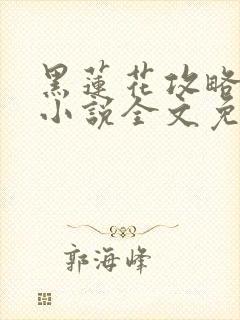 黑蓮花攻略
小說全文免
郭海峰